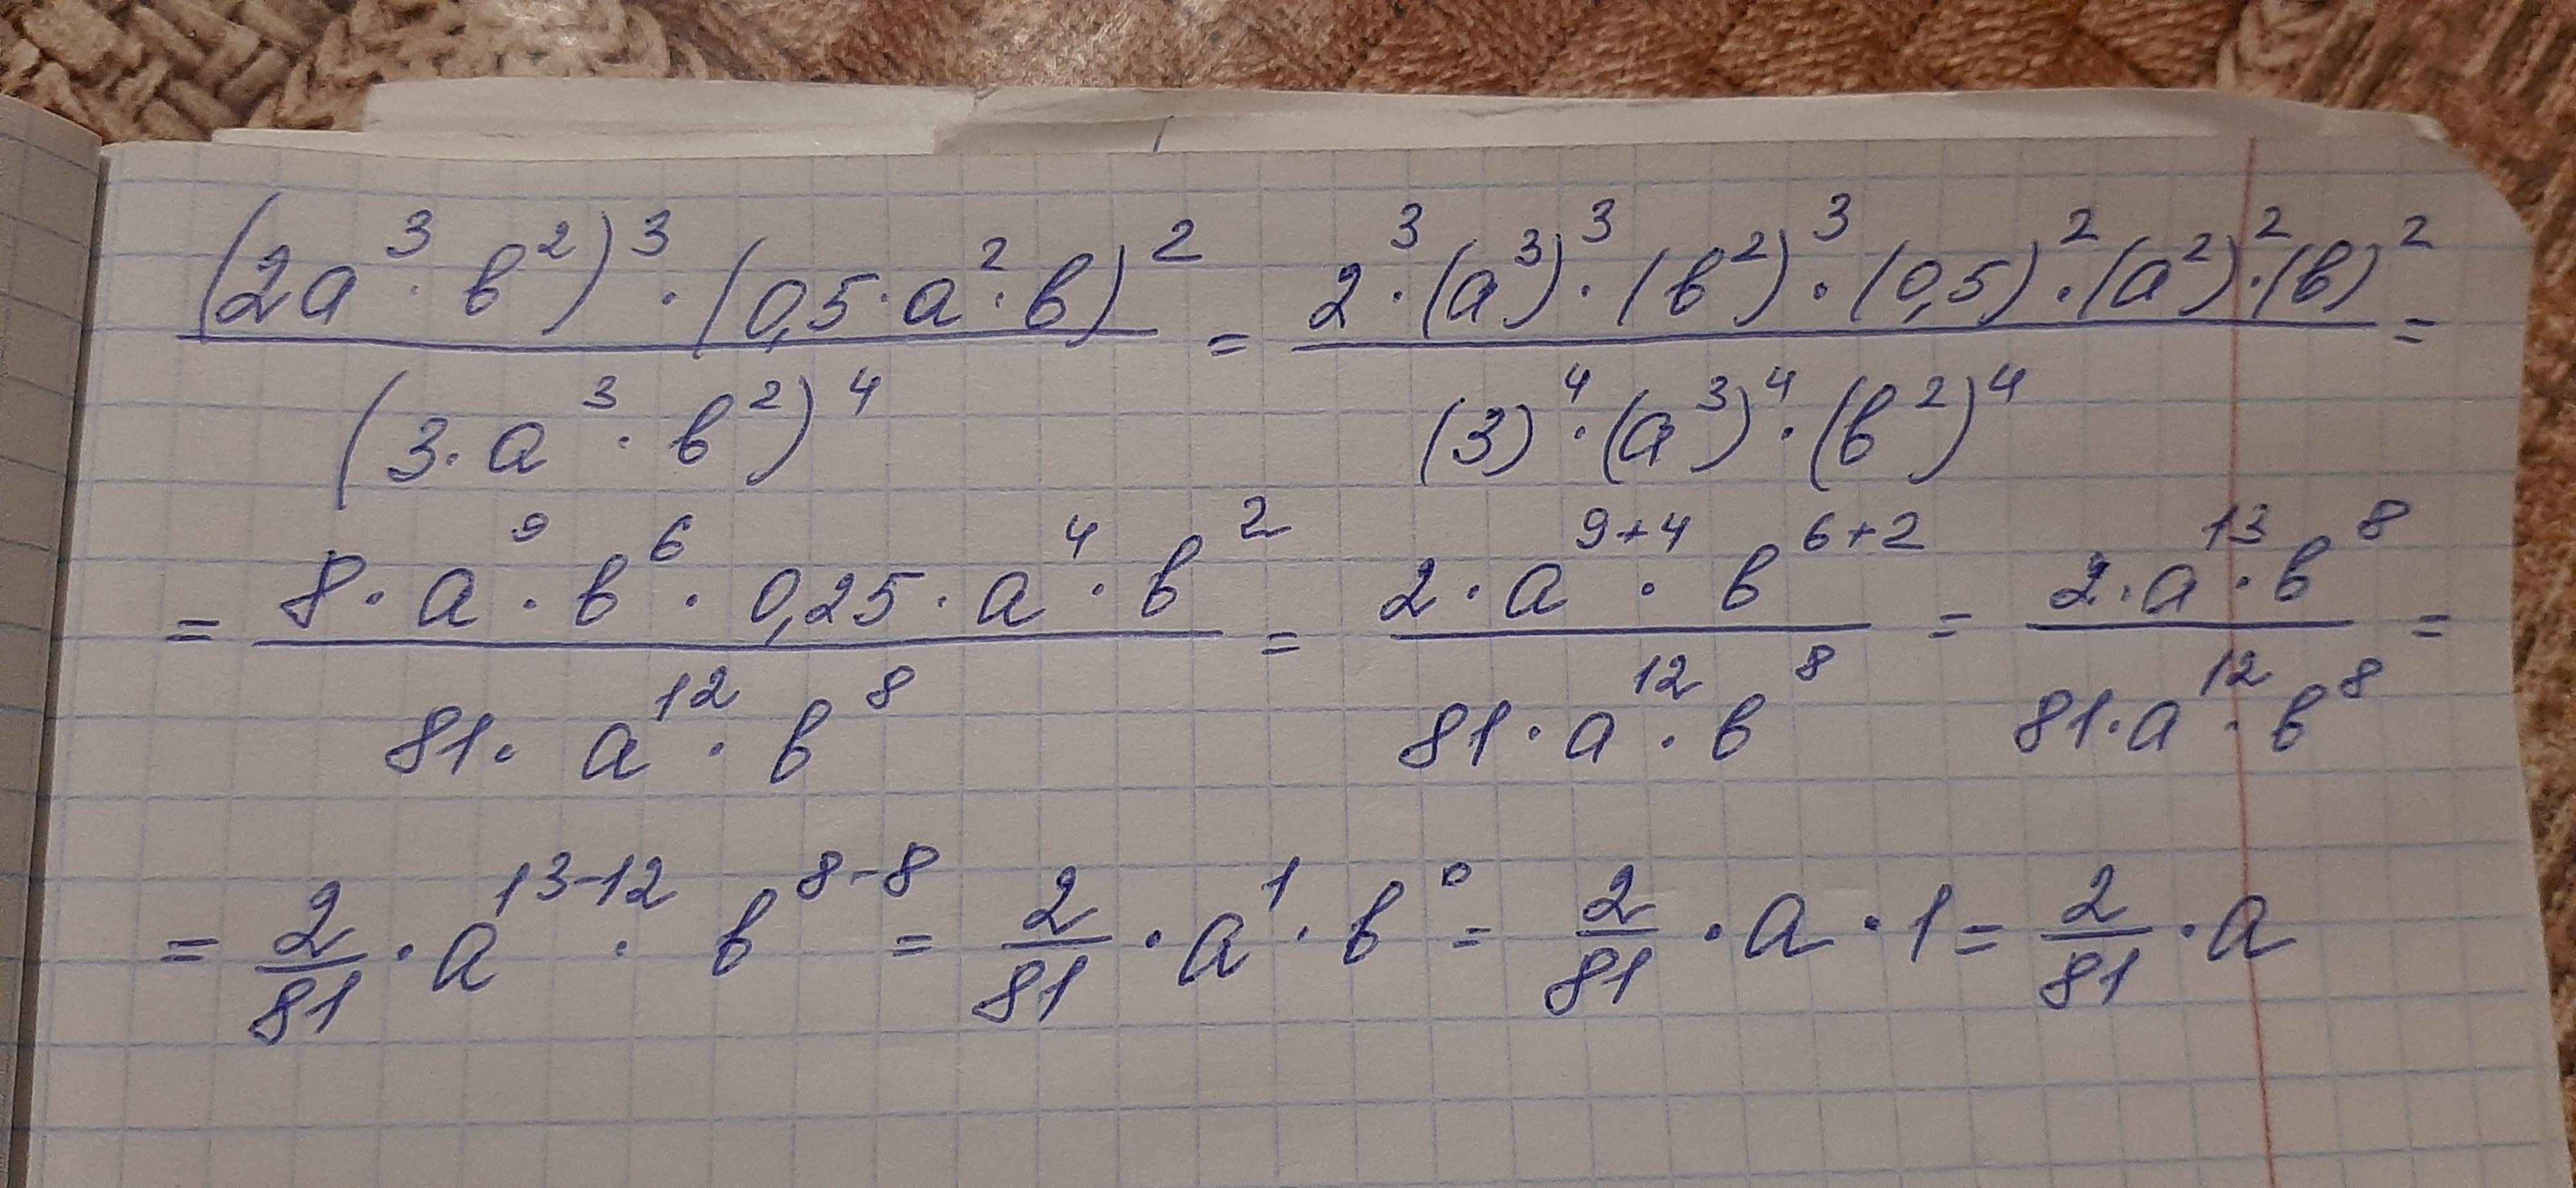 (2a³·b²)³·(0,5·a²·b)² / (3·a³·b²)⁴ = 2³·(a³)³·(b²)³·(0,5)²·(a²)²·(b)² / (3)⁴·(a³)⁴·(b²)⁴ =
= 8·a⁹·b⁶·0,25·a⁴·b² / 81·a¹²·b⁸ = 2·a⁹⁺⁴·b⁶⁺² / 81·a¹²·b⁸ = 2·a¹³·b⁸ / 81·a¹²·b⁸ =
= 2/81·a¹³⁻¹²·b⁸⁻⁸ = 2/81·a¹·b⁰ = 2/81·a·1 = 2/81·a